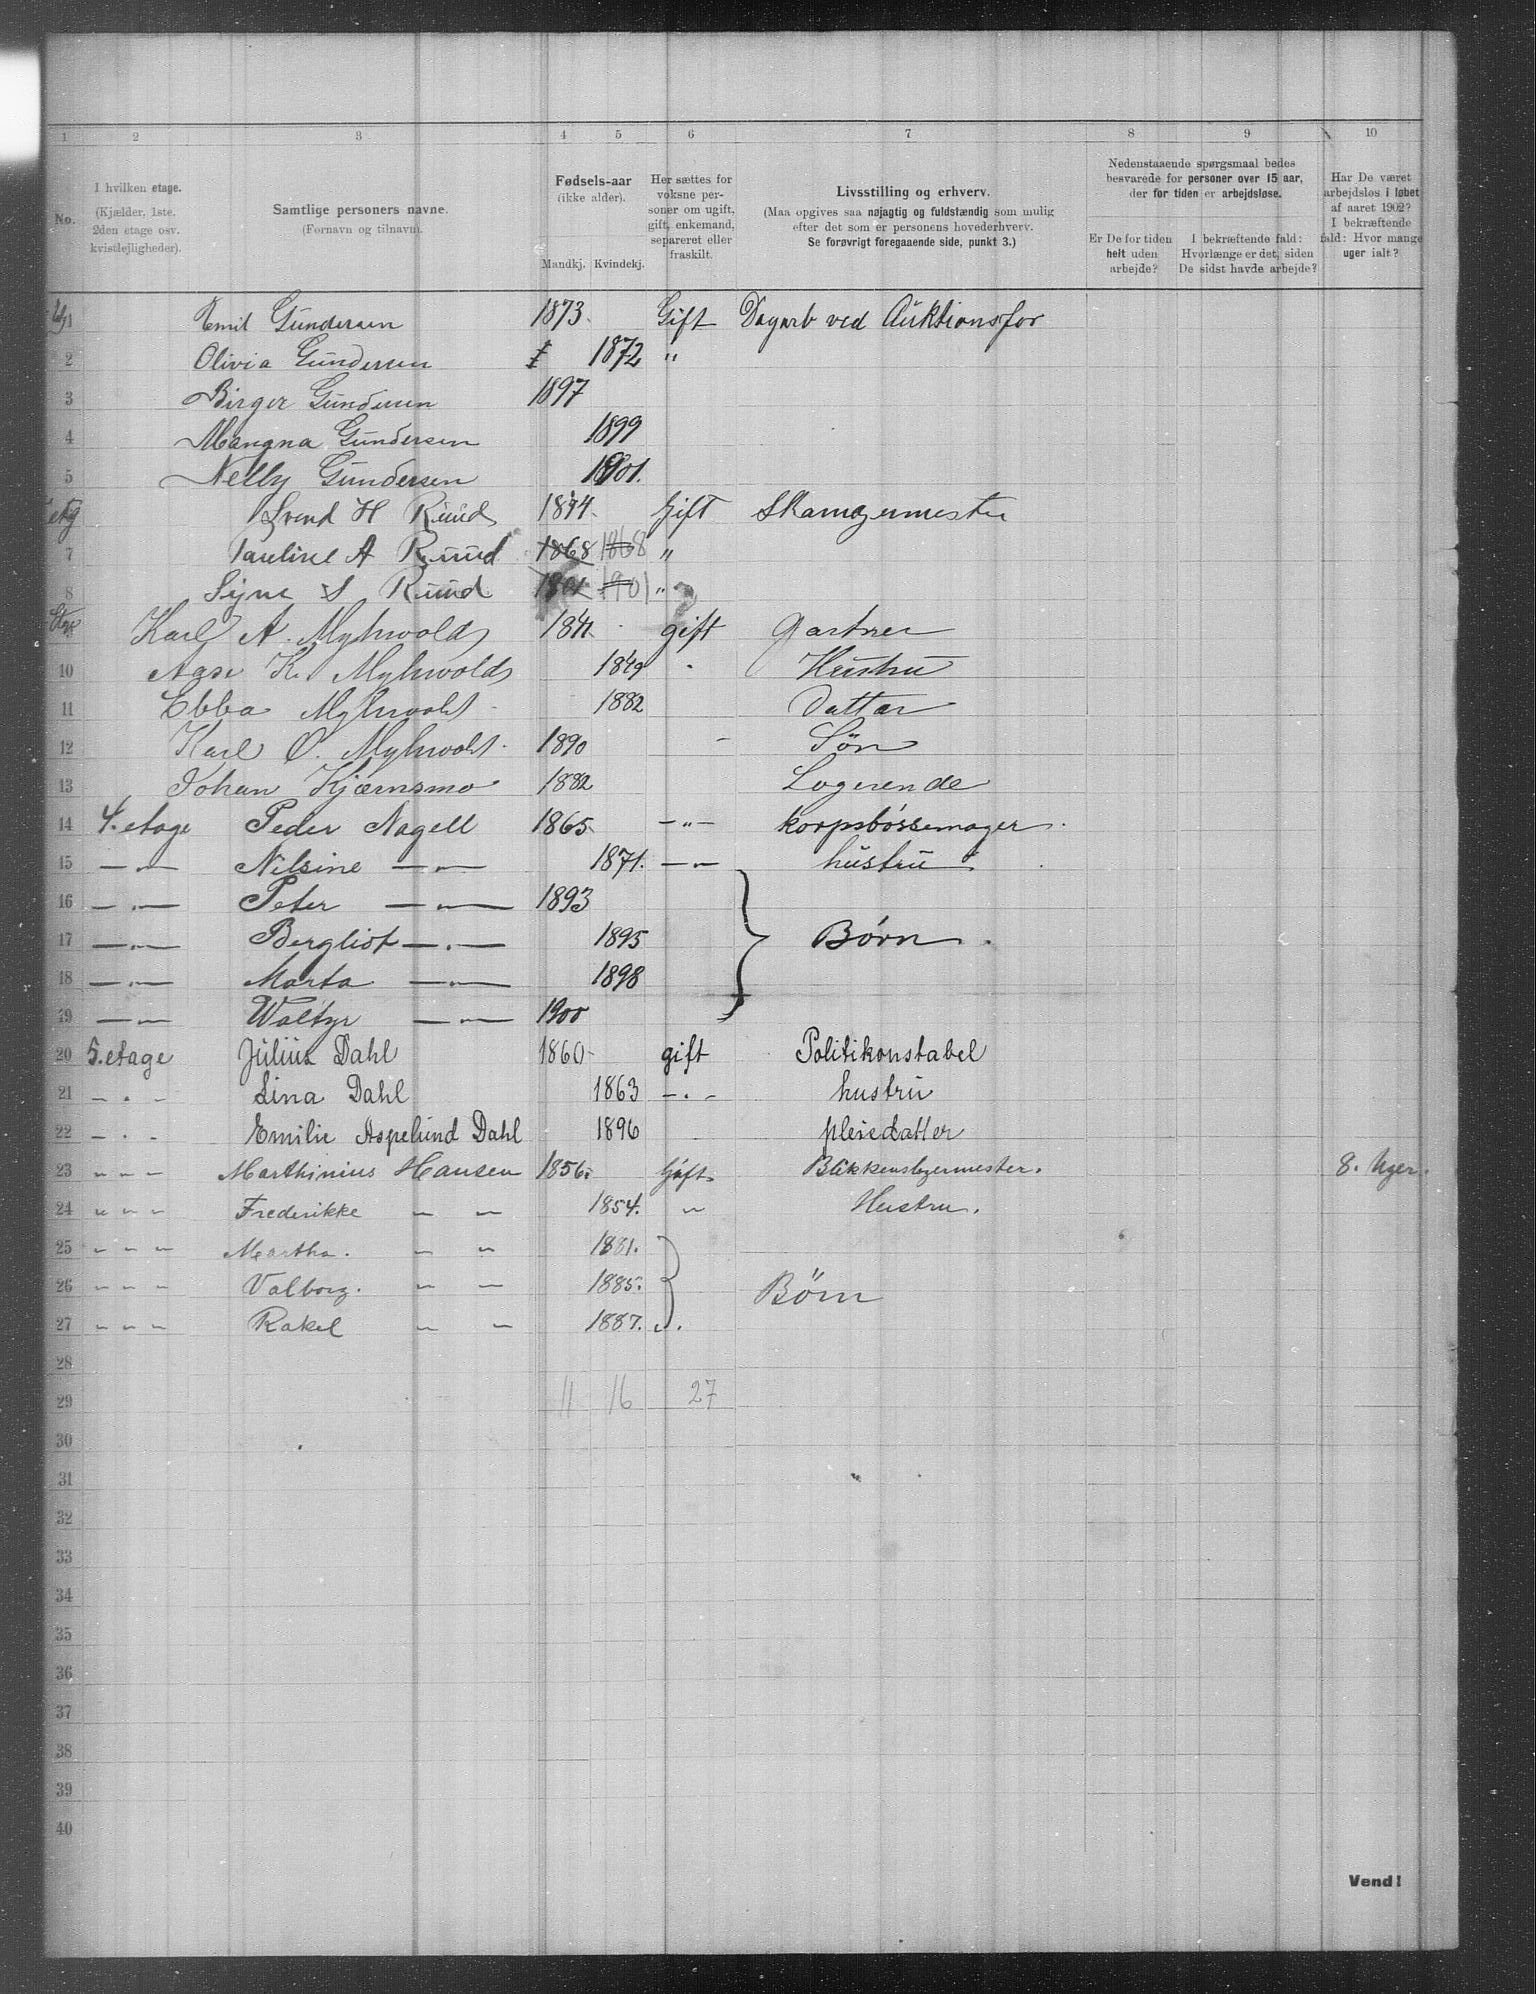 1 2 3 4 5 6 7 8 9 10
No.
I hvilken etage.
(Kjælder, 1ste.
2den etage osv.
kvistlejligheder).
Samtlige personers navne.
(Fornavn og tilnavn).
Fødsels-aar
(ikke alder).
Mandkj. Kvindekj.
Her sættes for
voksne per-
soner om ugift,
gift, enkemand,
separeret eller
fraskilt.
Livsstilling og erhverv.
(Maa opgives saa nøjagtig og fuldstændig som mulig
efter det som er personens hovederhverv.
Se forøvrigt foregaaende side, punkt 3.)
Nedenstaaende spørgsmaal bedes
besvarede for personer over 15 aar,
der for tiden er arbejdsløse.
Er De for tiden
helt uden
arbejde?
I bekræftende fald:
Hvorlænge er det, siden
De sidst havde arbejde?
Har De været
arbejdsløs i løbet
af aaret 1902?
I bekræftende
fald: Hvor mange
uger ialt?
1 Emil Gundersen 1873. Gift Dagarb ved Auktionsfor
2 Olivia Gundersen 1872 "
3 Birger Gundersen 1897
4 Mangna Gundersen 1899
5 Nelly Gundersen 1901.
etg Svend H Ruud 1874. Gift
7 Pauline A Ruud 1868 1868 "
8 Signe S Ruud 1901 1901 " ?
Karl A. Myhrvold 1841. gift Gartner
10 Aase K. Myhrvold 1849 " Hustru
11 Ebba Myhrvold 1882 Datter
12 Karl O. Myhrvold. 1890 - Søn
13 Johan Kjærnsmo 1882 Logerende
14 4. etage Peder Nagell 1865. —"— korpsbössemager.
15 —"— Nilsine —"— 1871. —"— hustru.
16 —"— Peter —"— 1893
17 —"— Bergliot —"— 1895 } Børn.
18 —"— Marta —"— 1898
19 —"— Waltyr —"— 1900
20 5. etage Julius Dahl 1860 gift Politikonstabel
21 - " - Lina Dahl 1863 - " - hustru
22 - " - Emilie Aspelund Dahl 1896 pleiedatter
23 " " " Marthinius Hansen 1856. Gift. Blikkenslagermester. 8. Uger.
24 " " " Frederikke " " 1854. " Hustru.
25 " " " Martha. " " 1881.
26 " " " Valborg. " " 1885. } Börn
27 " " " Rakel " " 1887. ".
28
29 11 16 27
30
31
32
33
34
35
36
37
38
39
40
Vend!